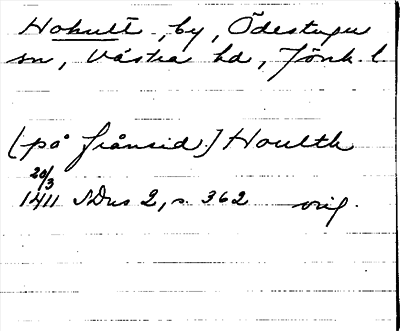 Hokult, by, Ödestugu
sn, Västra hd, Jönk. l
[på frånsid.] Houlth
20/3
1411 SDns 2, s. 362 orig.